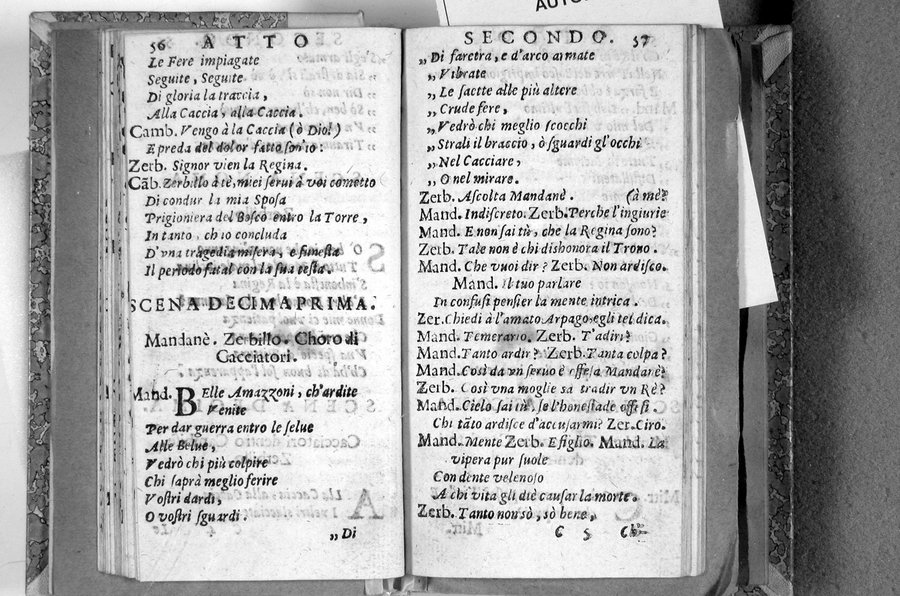 AUTO
56 ATTO
Le Fere impiagate
Seguite, Seguite
Di gloria la traccia,
Alla Caccia, alla Caccia.
Camb. Vengo à la Caccia (ò Dio!)
E preda del dolor fatto son'io:
Zerb. Signor vien la Regina.
Cãb. Zerbillo à tè, miei serui à voi cometto
Di condur la mia Sposa
Prigioniera del Bosco entro la Torre,
In tanto, ch'io concluda
D'vna tragedia misera, e funesta
Il periodo fatal con la sua testa.
SCENA DECIMAPRIMA.
Mandanè. Zerbillo. Choro di
Cacciatori.
Mand. BElle Amazzoni, ch'ardite
Venite
Per dar guerra entro le selue
Alle Belue,
Vedrò chi più colpire
Chi saprà meglio ferire
Vostri dardi,
O vostri sguardi.
„ Di
SECONDO. 57
„ Di faretra, e d'arco armate
„ Vibrate
„ Le saette alle più altere
„ Crude fere,
„ Vedrò chi meglio scocchi
„ Strali il braccio, ò sguardi gl'occhi
„ Nel Cacciare,
„ O nel mirare.
Zerb. Ascolta Mandanè. (à mè?
Mand. Indiscreto. Zerb. Perche l'ingiurie
Mand. E non sai tù, che la Regina sono?
Zerb. Tale non è chi dishonora il Trono.
Mand. Che vuoi dir? Zerb. Non ardisco.
Mand. Il tuo parlare
In confusi pensier la mente intrica.
Zer. Chiedi à l'amato Arpago, egli tel dica.
Mand. Temerario. Zerb. T'adiri?
Mand. Tanto ardir? Zerb. Tanta colpa?
Mand. Così da vn seruo è offesa Mandanè?
Zerb. Così vna moglie sà tradir vn Rè?
Mand. Cielo sai tù, se l'honestade offesi.
Chi tãto ardisce d'accusarmi? Zer. Ciro.
Mand. Mente Zerb. E figlio. Mand. La
vipera pur suole
Con dente velenoso
A chi vita gli diè causar la morte.
Zerb. Tanto non sò, sò bene,
C 5